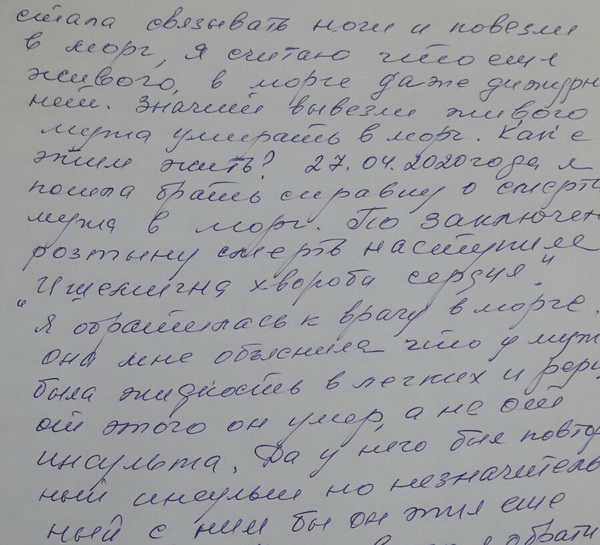 стала связывать ноги и повезли
в морг, я считаю что еще
живого, в морге даже дижурн
ний. Значит вывезли живого
мужа умирать в морг. Как с
этим жить? 27.04.2020 года я
пошла брать справку о смерти
мужа в морг. По заключен
розтыну смерть наступила
"Ишемична хвороба серця."
Я обратилась к врачу в морге.
она мне объяснила что у муж
была жидкость в легких и
от этого он умер, а не от
инсульта. Да у него был повтор
ный инсульт но незначитель
ный с ним бы он жил еще
обрати